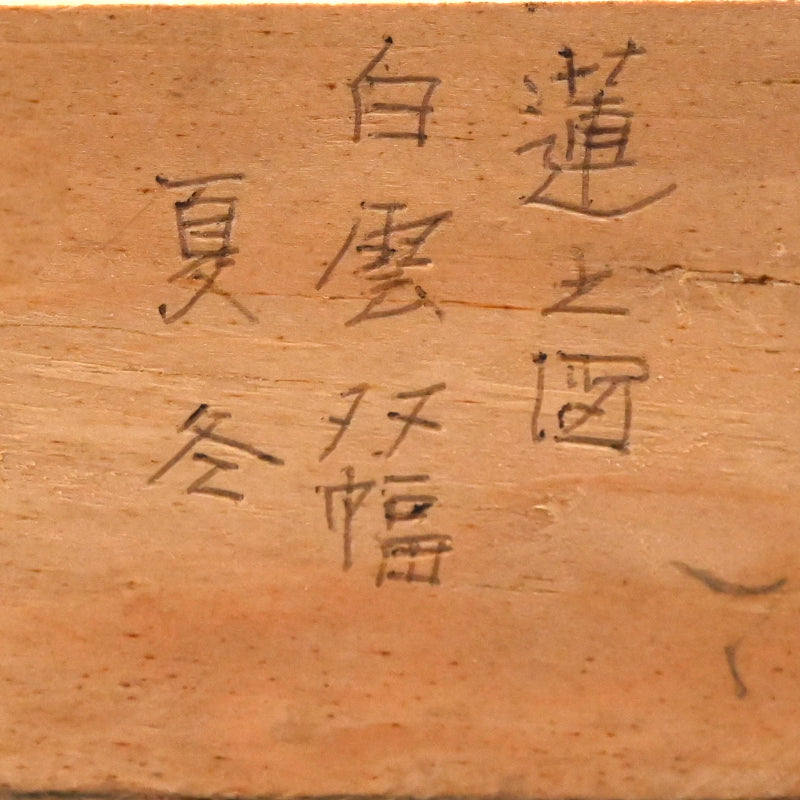 蓮之図
白雲双幅
夏冬